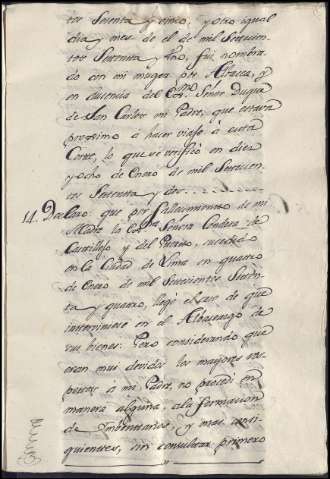 tos Setenta y cinco, y otro igual
dia y mes de el de mil Setecien
tos Setenta y uno, fui nombra
do con mi muger por Albacea, y
en ausencia del Exmo. Señor Duque
de San Carlos mi Padre, que estava
proximo à hacer viaje à esta
Corte, lo que se verificó en diez
y ocho de Enero de mil Setecien
tos Setenta y dos.
14. Declaro: que por fallecimiento de mi
Madre la Exma. Señora Condesa de
Castillejo y del Puerto, sucedido
en la Ciudad de Lima en quatro
de Enero de mil Setecientos Seten
ta y quatro, llegó el caso de que
interviniese en el Albaceazgo de
sus bienes: Pero considerando que
eran mui devidos los mayores res
petos à mi Padre, no procedi en
manera alguna, à la formacion
de Imbentarios, y mas consi
guientes, sin consultar primero